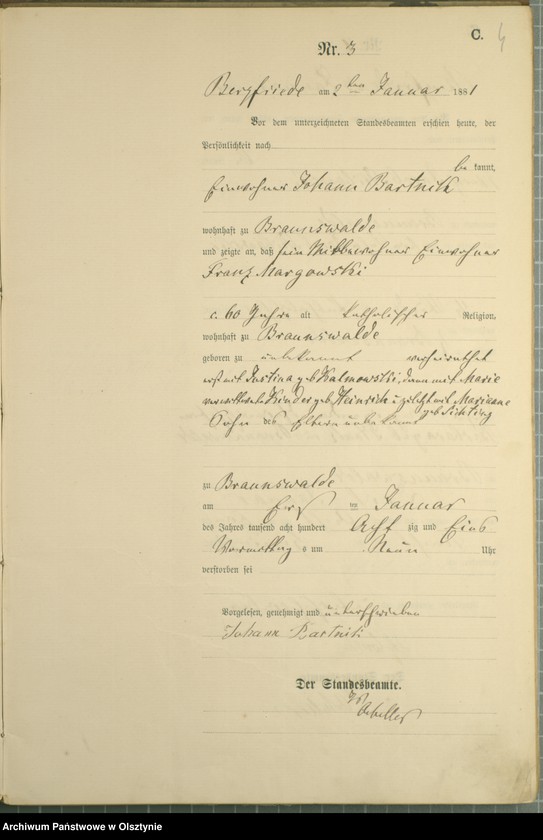 C.
4
Nr. 3
Bergfriede am 2ten Januar 1881
Vor dem unterzeichneten Standesbeamten erschien heute, der
Persönlichkeit nach
be kannt,
Einwohner Johann Bartnik
wohnhaft zu Braunswalde
und zeigte an, daß sein Mitbewohner Einwohner
Franz Margowski
c. 60 Jahre alt katholischer Religion,
wohnhaft zu Braunswalde
geboren zu unbekannt verheirathet
erst mit Justina geb Kalmowski, dann mit Marie
Kinder geb Heinrich u zuletzt mit Marianne
geb
Sohn des Eltern unbekannt
zu Braunswalde
am Ers ten Januar
des Jahres tausend acht hundert Acht zig und Eins
Vormittag s um Neun Uhr
verstorben sei
Vorgelesen, genehmigt und unterschrieben
Johann Bartnik
Der Standesbeamte.
Archiwum Państwowe w Olsztynie